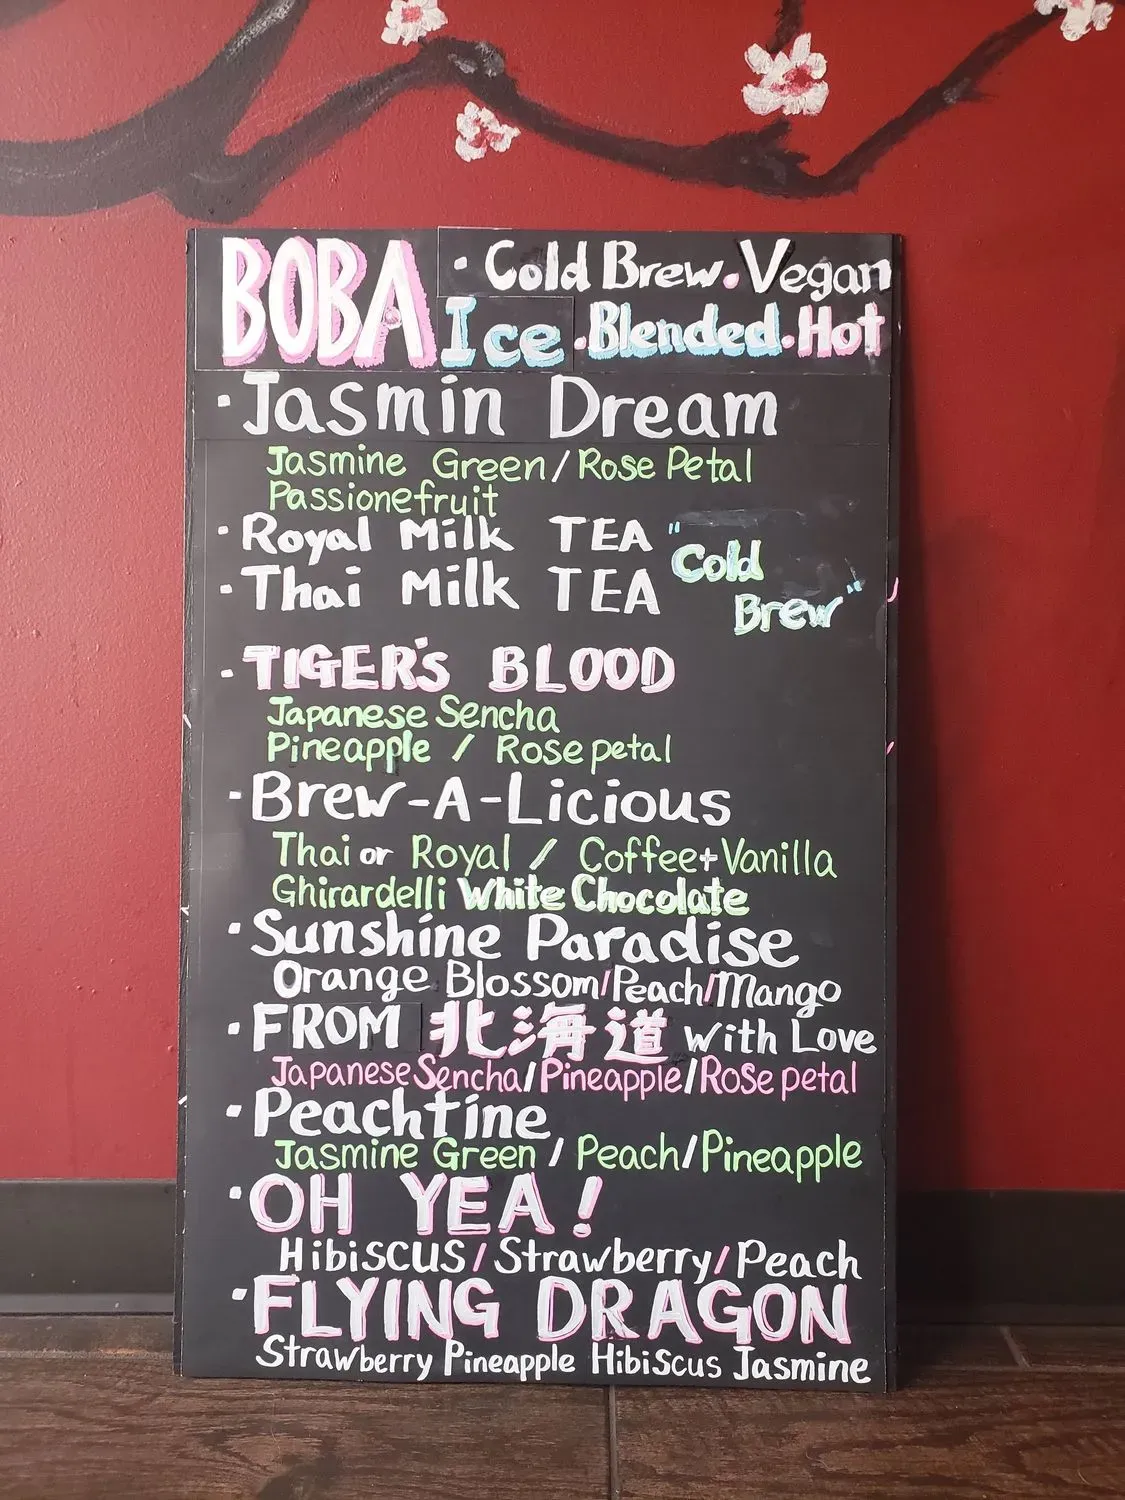 BOBA
· Cold Brew · Vegan
Ice · Blended · Hot
· Jasmin Dream
Jasmine Green / Rose Petal
Passionefruit
· Royal Milk TEA
· Thai Milk TEA
"Cold
Brew"
· TIGER'S BLOOD
Japanese Sencha
Pineapple / Rose petal
- Brew-A-Licious
Thai or Royal / Coffee + Vanilla
Ghirardelli White Chocolate
· Sunshine Paradise
Orange Blossom/Peach/Mango
· FROM 北海道 with Love
Japanese Sencha/Pineapple/Rose petal
· Peachtine
Jasmine Green / Peach/Pineapple
· OH YEA!
HibiSCUS / Strawberry / Peach
· FLYING DRAGON
Strawberry Pineapple HibiScus Jasmine